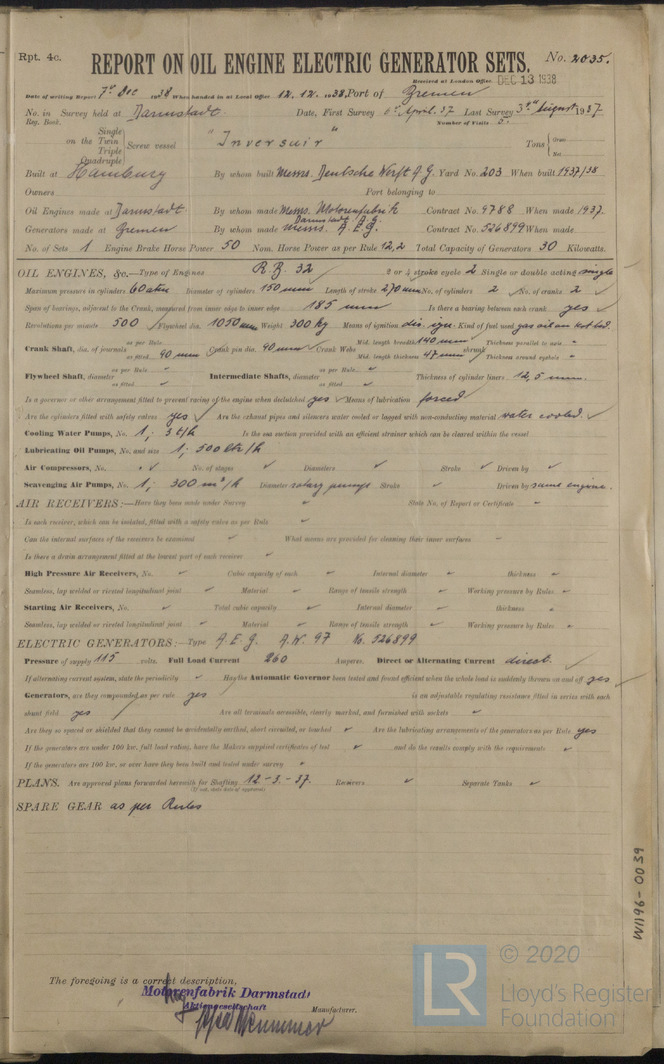 Rpt. 4c.
REPORT ON OIL ENGINE ELECTRIC GENERATOR SETS.
No. 2035.
Received at London Office DEC 13 1938
Date of writing Report 7th Dec 1938 When handed in at Local Office 12.12.1938 Port of Bremen
No. in Survey held at Darmstadt. Date, First Survey 6th April. 37 Last Survey 3rd August 1937
Reg. Book. Number of Visits 5.
Single
on the Twin Screw vessel "Inversuir" Tons Gross
Triple Net
Quadruple
Built at Hamburg By whom built Messrs. Deutsche Werft A.G. Yard No. 203 When built 1937/38
Owners Port belonging to
Oil Engines made at Darmstadt. By whom made Messrs. Motorenfabrik Darmstadt A.G. Contract No. 4788 When made 1937.
Generators made at Bremen By whom made Messrs. A.E.G. Contract No. 526899 When made
No. of Sets 1 Engine Brake Horse Power 50 Nom. Horse Power as per Rule 12,2 Total Capacity of Generators 30 Kilowatts.
OIL ENGINES, &c.—Type of Engines R.Z. 32 2 or 4 stroke cycle 2 Single or double acting single
Maximum pressure in cylinders 60 atm Diameter of cylinders 150 mm Length of stroke 270 mm No. of cylinders 2 No. of cranks 2
Span of bearings, adjacent to the Crank, measured from inner edge to inner edge 185 mm Is there a bearing between each crank yes
Revolutions per minute 500 Flywheel dia. 1050 mm Weight 300 kg Means of ignition Kind of fuel used
Crank Shaft, dia. of journals as per Rule as fitted 90 mm Crank pin dia. 90 mm Crank Webs Mid. length breadth 140 mm Mid. length thickness 47 mm shrunk Thickness parallel to axis Thickness around eyehole
Flywheel Shaft, diameter as per Rule as fitted Intermediate Shafts, diameter as per Rule as fitted Thickness of cylinder liners 12,5 mm.
Is a governor or other arrangement fitted to prevent racing of the engine when declutched yes Means of lubrication forced
Are the cylinders fitted with safety valves yes Are the exhaust pipes and silencers water cooled or lagged with non-conducting material water cooled.
Cooling Water Pumps, No. 1; 3 t/h Is the sea suction provided with an efficient strainer which can be cleared within the vessel
Lubricating Oil Pumps, No. and size 1; 500 ltr/h
Air Compressors, No. No. of stages Diameters Stroke Driven by
Scavenging Air Pumps, No. 1; 300 m³/h Diameter rotary pump Stroke Driven by same engine.
AIR RECEIVERS:—Have they been made under Survey State No. of Report or Certificate
Is each receiver, which can be isolated, fitted with a safety valve as per Rule
Can the internal surfaces of the receivers be examined What means are provided for cleaning their inner surfaces
Is there a drain arrangement fitted at the lowest part of each receiver
High Pressure Air Receivers, No. Cubic capacity of each Internal diameter thickness
Seamless, lap welded or riveted longitudinal joint Material Range of tensile strength Working pressure by Rules
Starting Air Receivers, No. Total cubic capacity Internal diameter thickness
Seamless, lap welded or riveted longitudinal joint Material Range of tensile strength Working pressure by Rules
ELECTRIC GENERATORS:—Type A.E.G. A.W. 97 No. 526899
Pressure of supply 115 volts. Full Load Current 260 Amperes. Direct or Alternating Current direct.
If alternating current system, state the periodicity Has the Automatic Governor been tested and found efficient when the whole load is suddenly thrown on and off yes
Generators, are they compounded as per rule yes is an adjustable regulating resistance fitted in series with each
shunt field yes Are all terminals accessible, clearly marked, and furnished with sockets
Are they so spaced or shielded that they cannot be accidentally earthed, short circuited, or touched Are the lubricating arrangements of the generators as per Rule yes
If the generators are under 100 kw. full load rating, have the Makers supplied certificates of test and do the results comply with the requirements
If the generators are 100 kw. or over have they been built and tested under survey
PLANS. Are approved plans forwarded herewith for Shafting 12-3.-37. Receivers Separate Tanks
(If not, state date of approval)
SPARE GEAR as per Rules
W1196-0039
The foregoing is a correct description,
Motorenfabrik Darmstadt
Aktiengesellschaft
Manufacturer.
LR © 2020
Lloyd's Register
Foundation